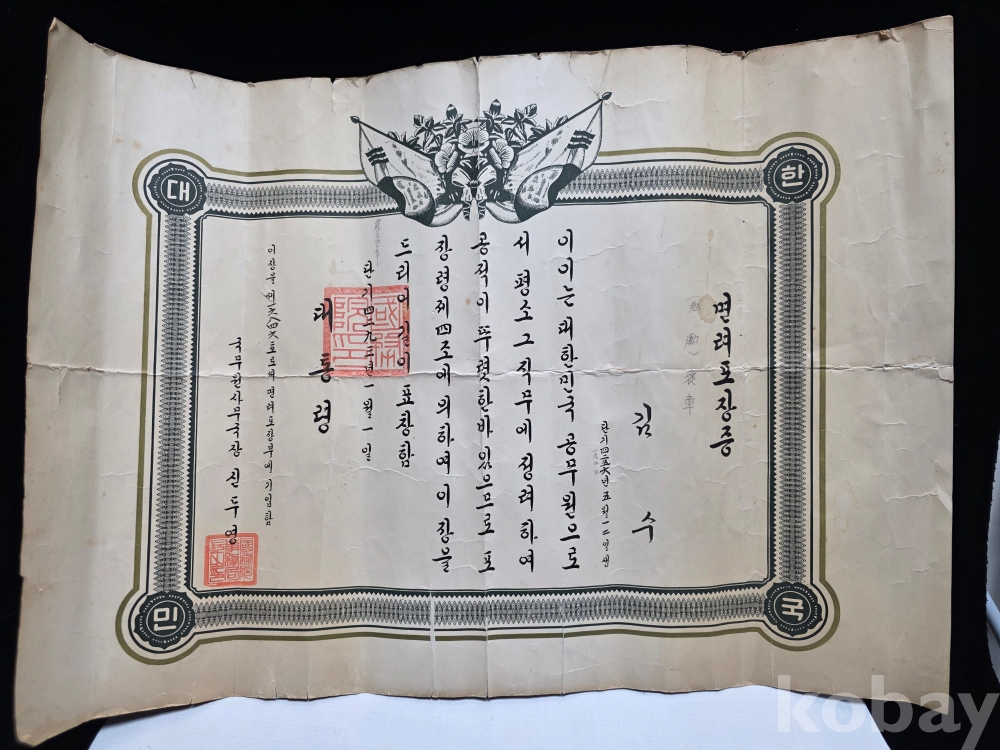 대
한
민
국
면려포장증
勵
褒章
김 수
단기四二五六년 五월一二일생
이이는 대한민국 공무원으로
서 평소 그 직무에 정려하여
공적이 뚜렷한바 있으므로 포
장령제四조에 의하여 이 장을
드리어 길이 표창함
단기四二九二년 一월 一일
대통령
이 장을 제一六八四六호로써 면려포장부에 기입함
국무원사무국장 신두영
kobay